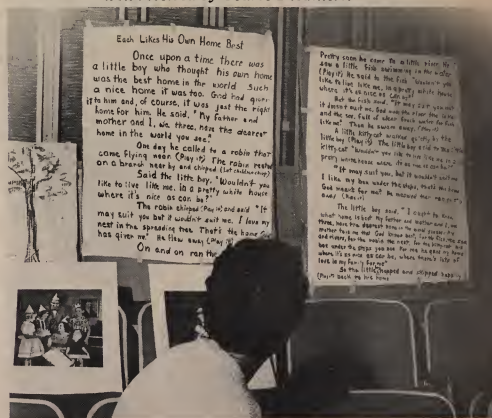 Each Likes His Own Home Best
Once upon a time there was
a little boy who thought his own home
was the best home in the world. Such
a nice home it was too. God had given
it to him and, of course, it was just the right
home for him. He said, "My father and
mother and I, we three, have the dearest
home in the world you see."
One day he called to a robin that
came flying near (Play it) The robin rested
on a branch near by and chirped (Let children chirp)
Said the little boy, "Wouldn't you
like to live like me, in a pretty white house
where it's nice as can be?"
The robin chirped (Play it) and said "It
may suit you but it wouldn't suit me. I love my
nest in the spreading tree. That's the home God
has given me" He flew away (Play it)
On and on ran the
Pretty soon he came to a little river. He
saw a little fish swimming in the water
(Play it) He said to the fish "Wouldn't you
like to live like me, in a pretty white house
where it's as nice as can be?"
But the fish said, "It may suit you but
it doesn't suit me. God made the clear
and the sea, full of clear fresh water for fish
like me." Then he swam away. (Play it)
A little kitty cat walked
little boy (Play it) The little boy said to the little
kitty cat "Wouldn't you like to live like me in a
pretty white house where it's as nice as can be?"
"It may suit you, but it wouldn't suit me
I like my box under the steps, that's the home
God meant for me." He meowed
away (Play it)
The little boy said, "I ought to know
what home is best. My father and mother and I, we
three, have the dearest home in the world
mother told me that God knows best. For the fish the sea
and rivers, for the robin the nest, for the kitty cat
box under the steps you see. For me he gave my home
where it's as nice as can be, where there's lots of
love in my family for me"
So the little hopped and skipped happily
(Play it) back to his home